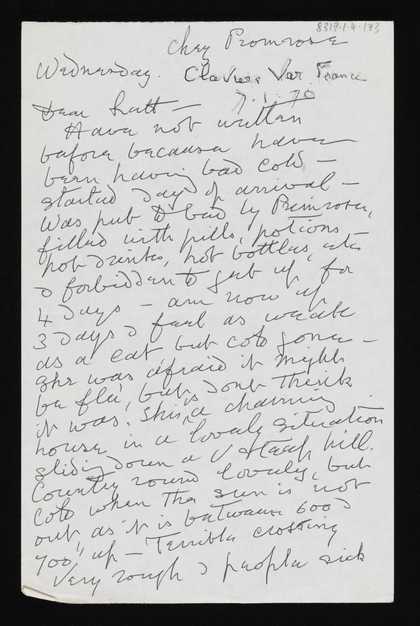 8319.1.4.193
chez Primrose
Wednesday. Claviers Var France
7.1.70
Dear
Have not written
before because have
been having bad cold –
started day of arrival –
Was put to bed by Primrose,
filled with pills, potions –
hot drinks, hot bottles, etc
& forbidden to get up for
4 days – am now up
3 days & feel as weak
as a cat but cold gone –
She was afraid it might
be flu, but I dont think
it was. This is a charming
house in a lovely situation
sliding down a V steep hill.
Country round lovely, but
cold when the sun is not
out, as it is between 600 &
700, up – Terrible crossing
Very rough & people sick